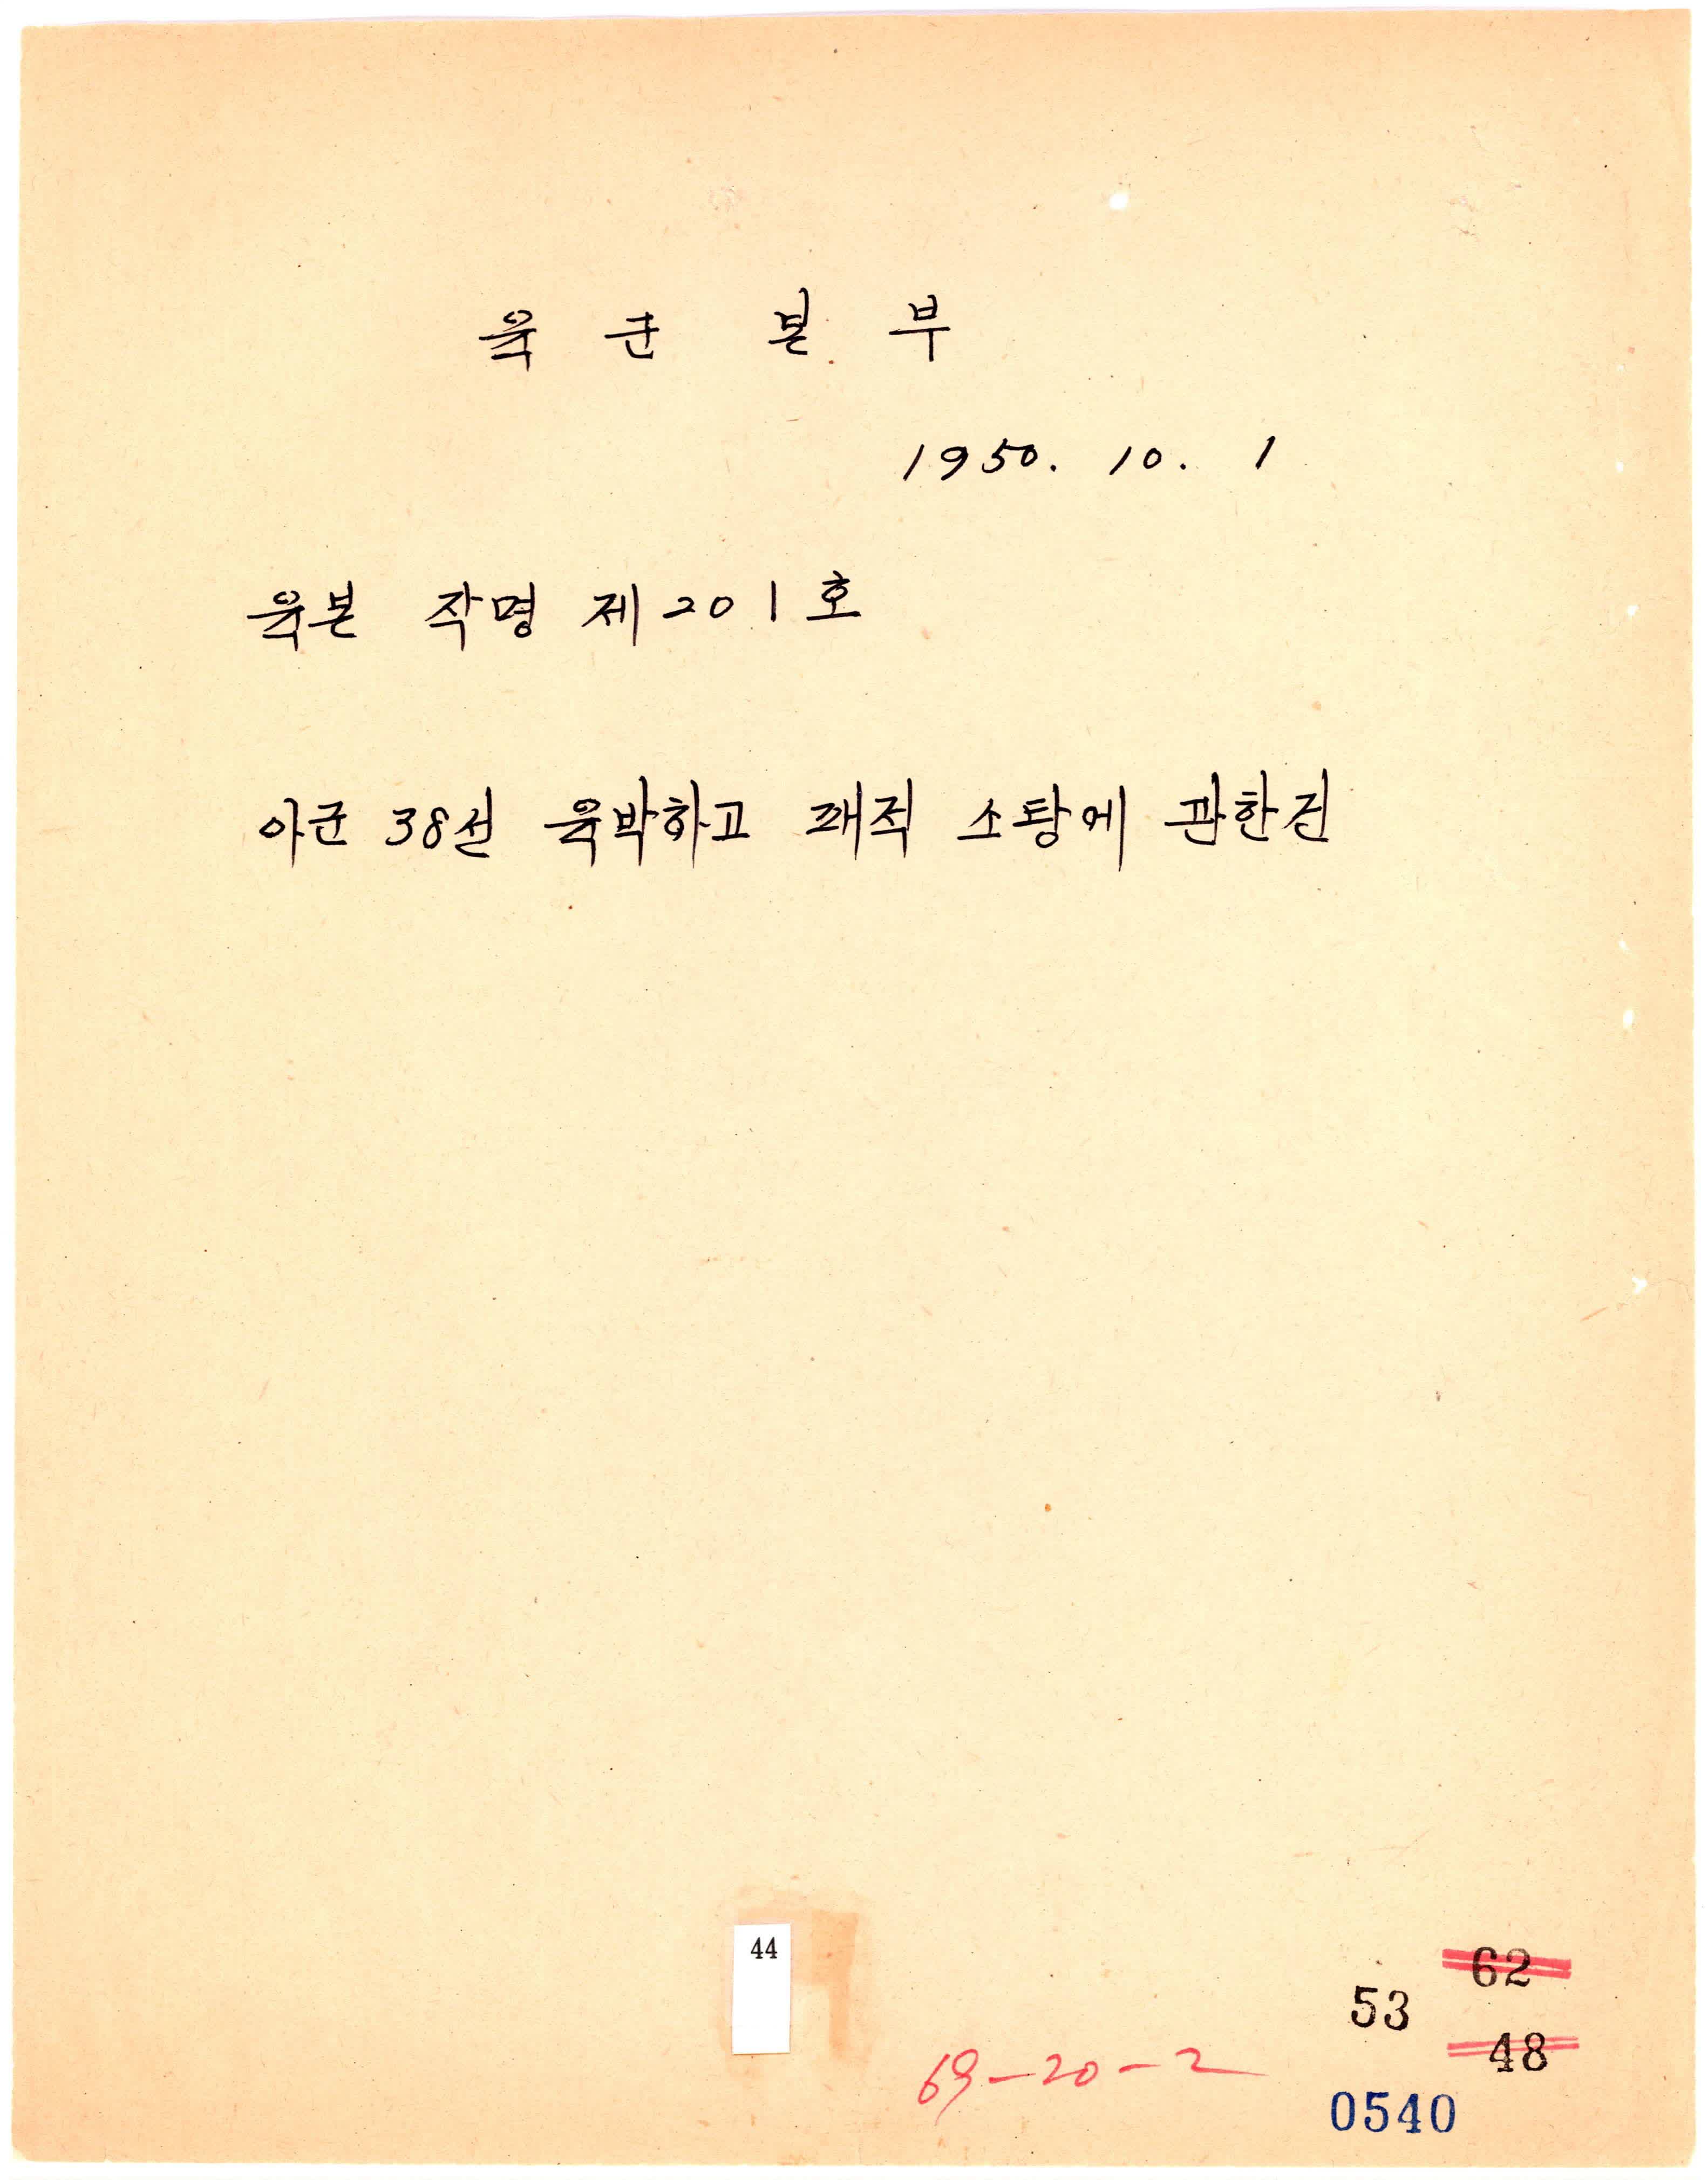 육 군 본 부
1950. 10. 1
육본 작명 제201호
아군 38선 육박하고 패적 소탕에 관한건
44
62
53
48
69-20-2
0540